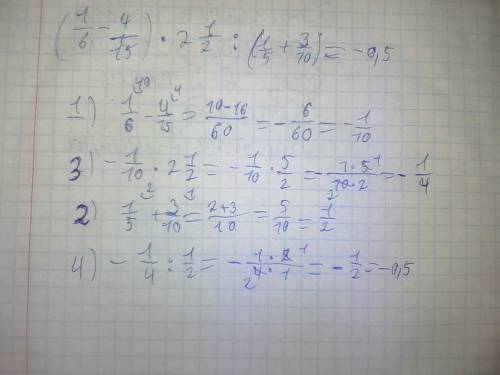 (1/6 - 4/15) · 2 1/2 : (1/5 + 3/10) = -0,5
1) 1/6^10 - 4/15^4 = 10-16/60 = - 6/60 = - 1/10
3) - 1/10 · 2 1/2 = - 1/10 · 5/2 = - 1·5^1/10_2·2 = - 1/4
2) 1/5^2 + 3/10^1 = 2+3/10 = 5/10 = 1/2
4) - 1/4 : 1/2 = - 1·2^1/4_2·1 = - 1/2 = -0,5